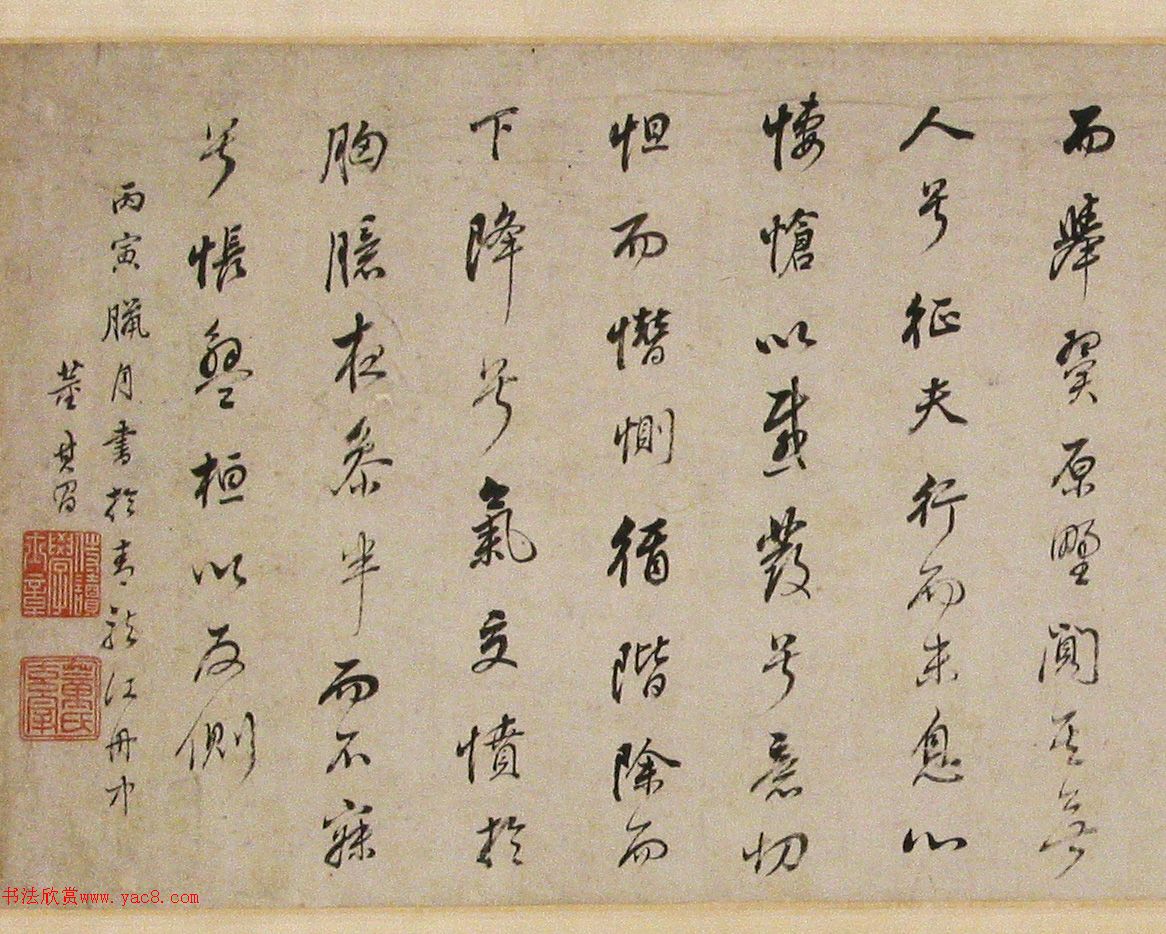 而舉翼原野闃其無
人兮征夫行而未息心
悽愴以感發兮意忉
怛而憯惻循階除而
下降兮氣交憤於
胸臆夜參半而不寐
兮悵盤桓以反側
丙寅臘月書於青龍江舟中
董其昌
董氏玄宰
书法欣赏www.yac8.com